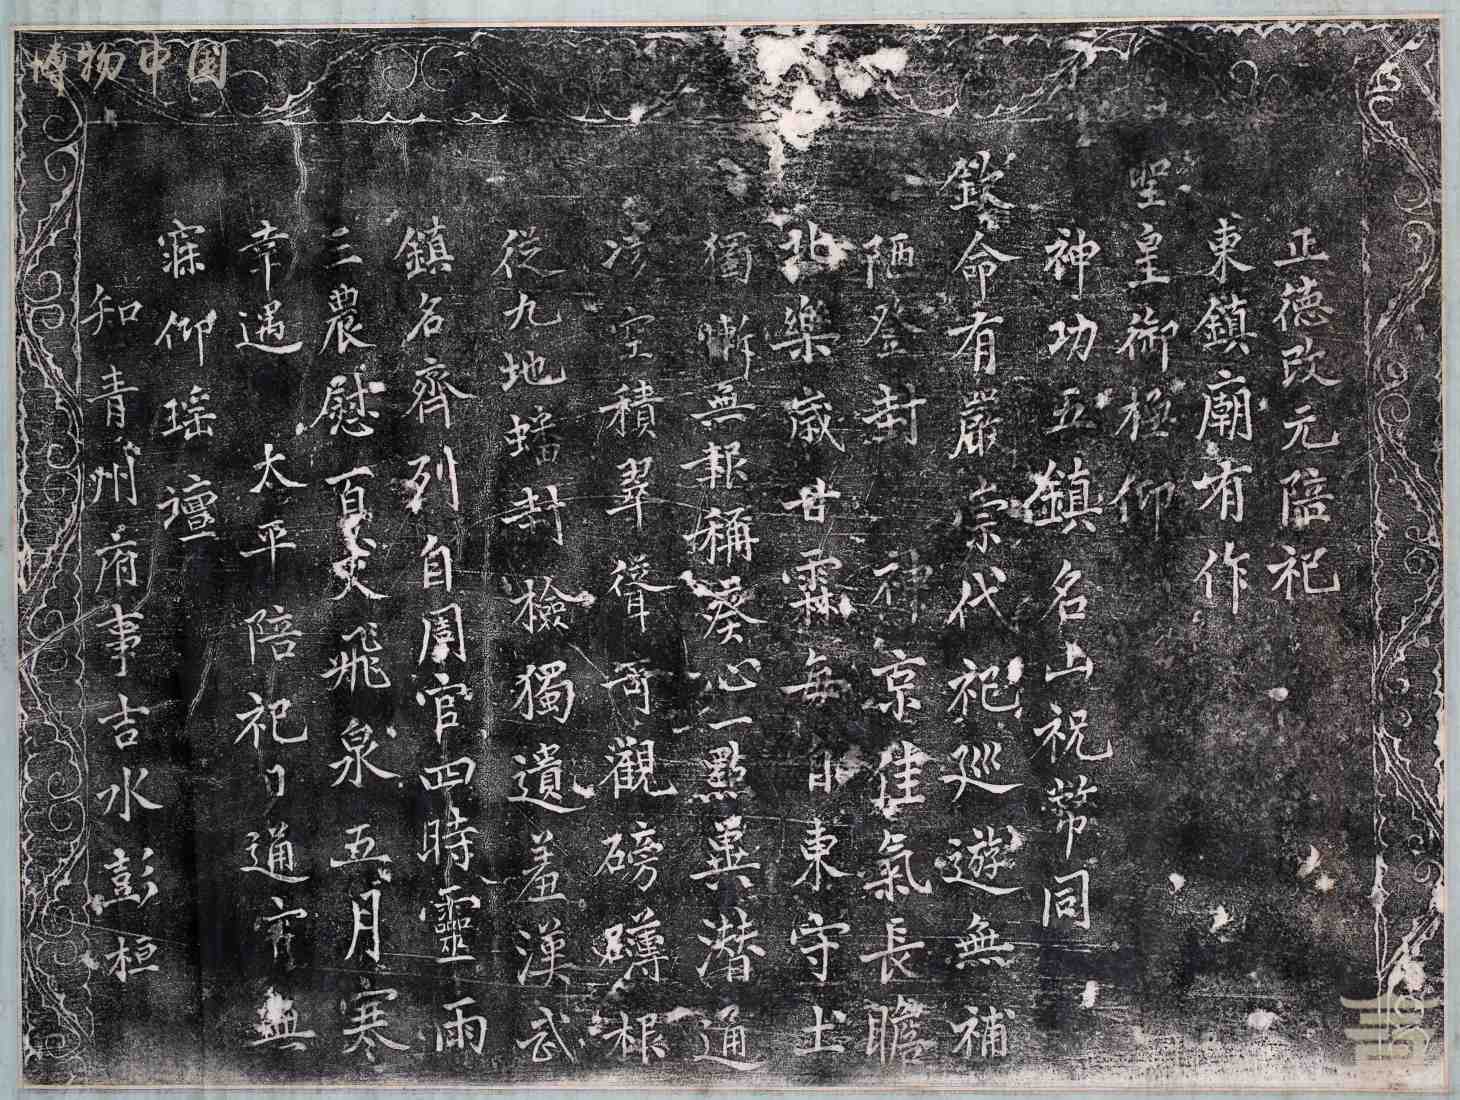 正德改元陪祀
東鎮廟有作
聖皇御極仰
神功五鎮名山祝幣同
欽命有嚴崇代祀巡遊無補
陋登封 神京佳氣長瞻
北樂歲甘霖每自東守土
獨慚無報稱葵心一點冀潛通
空積翠聳奇觀磅礴根
從九地蟠封檢獨遺羞漢武
鎮名齊列自周官四時靈雨
三農慰百丈飛泉五月寒
幸遇 太平陪祀日通宵無
寐仰瑤壇
知青州府事吉水彭桓
博物中国